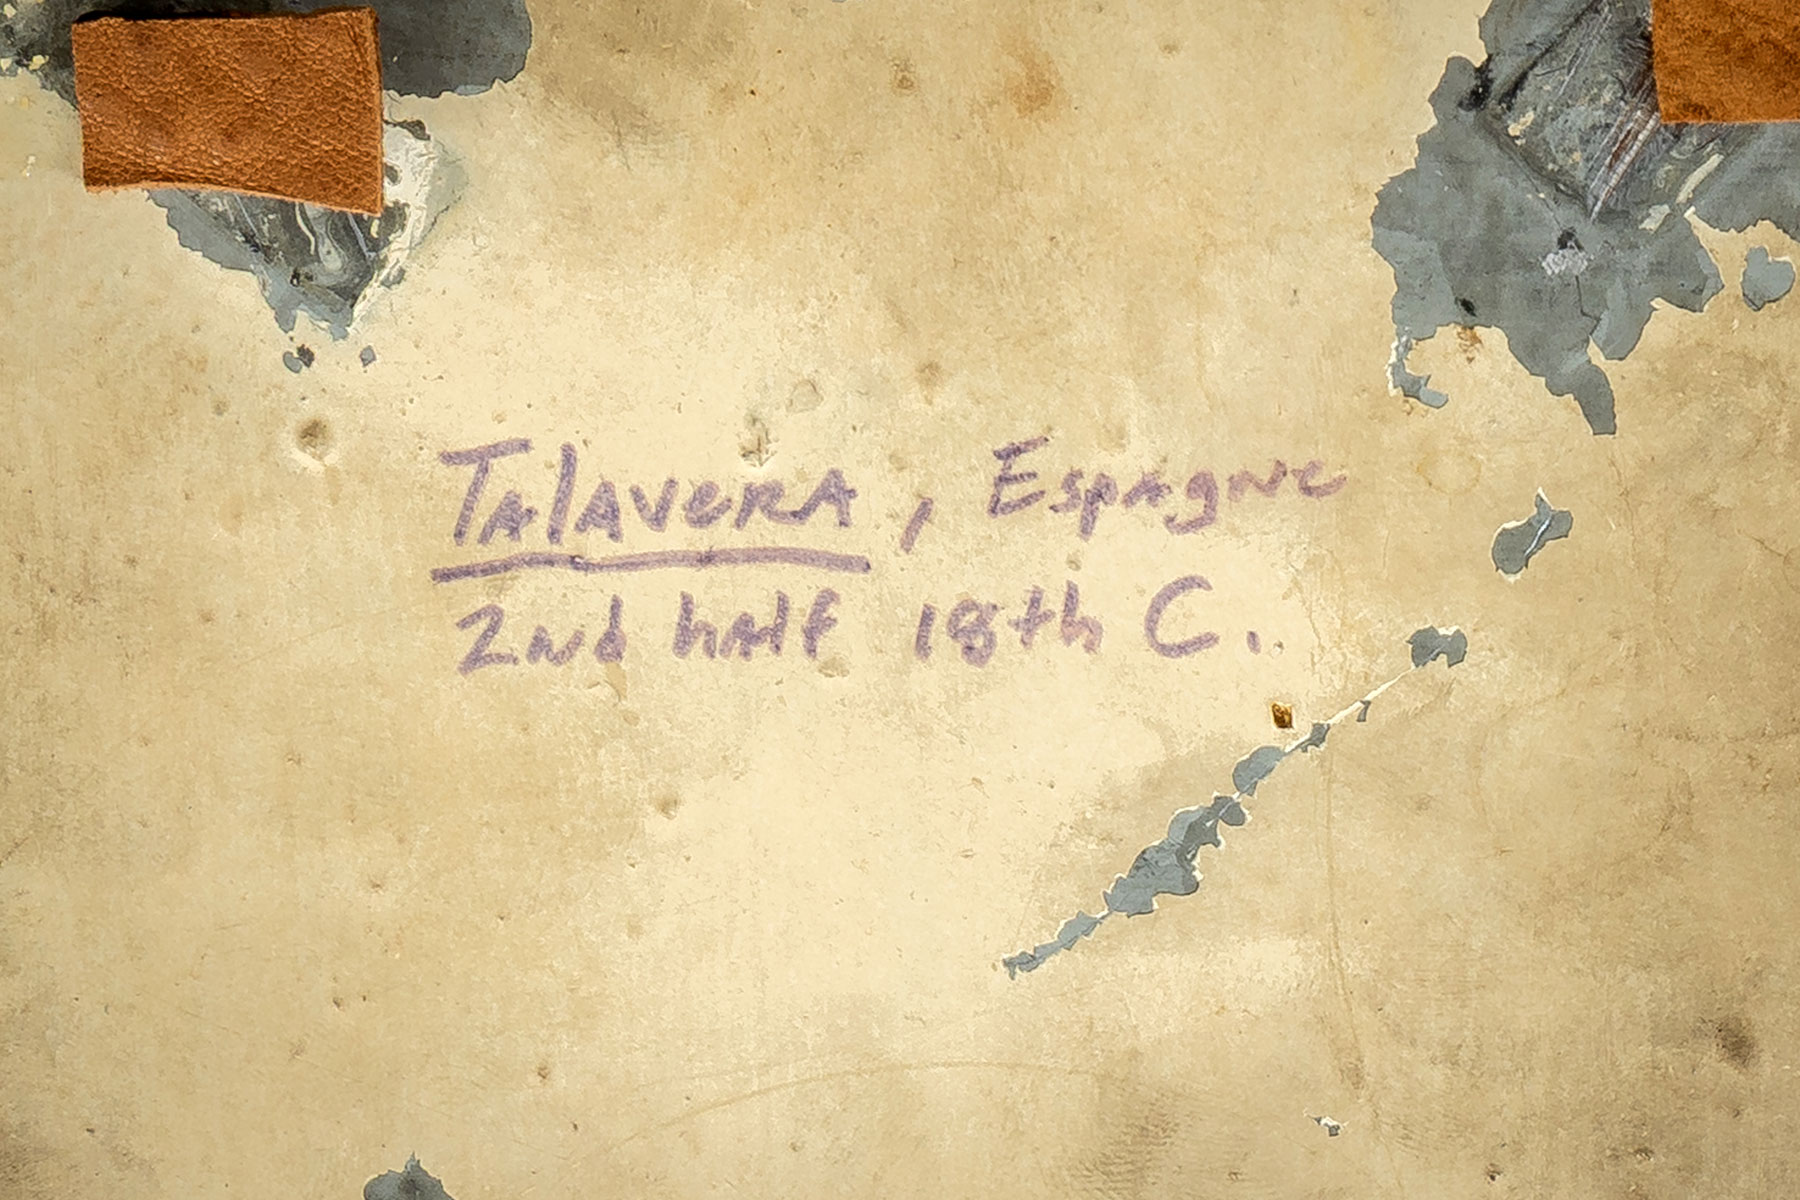 TAlAveRA, Espagne
2nd half 18th C.